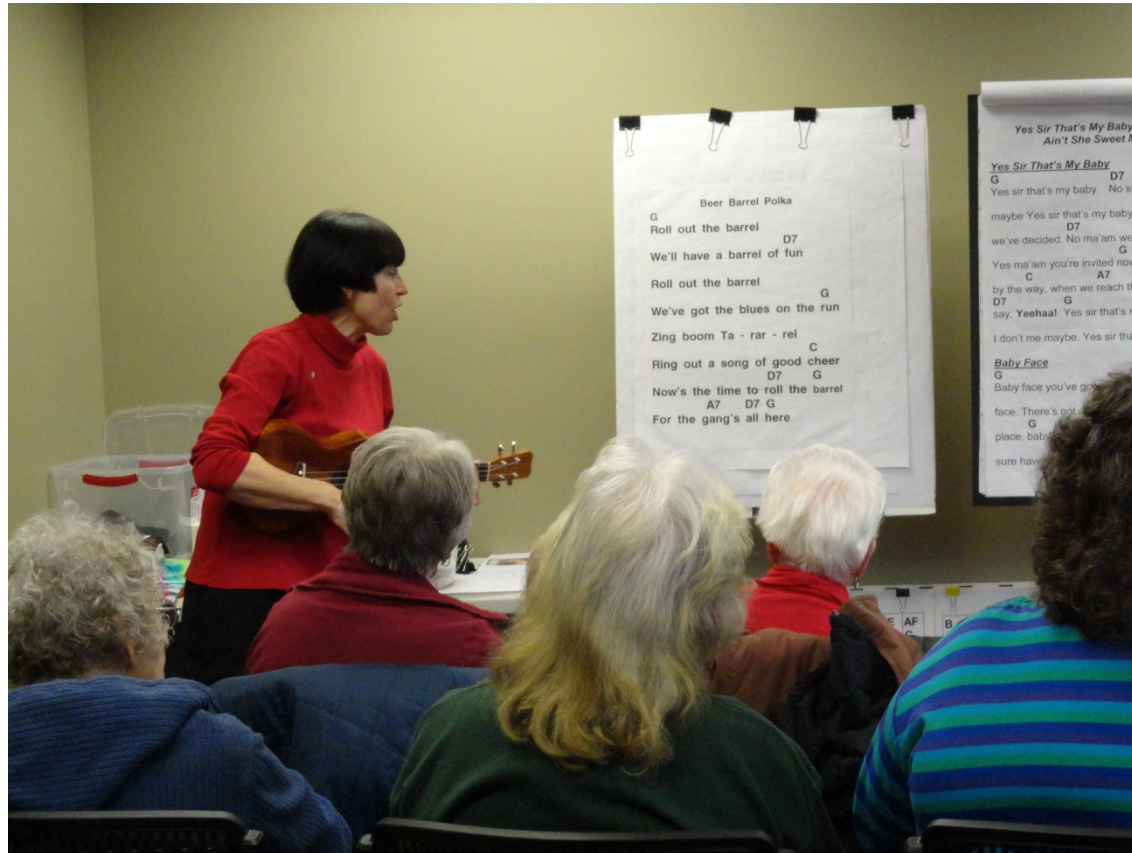 Beer Barrel Polka
G
Roll out the barrel
D7
We'll have a barrel of fun
Roll out the barrel
G
We've got the blues on the run
Zing boom Ta - rar - rel
C
Ring out a song of good cheer
D7 G
Now's the time to roll the barrel
A7 D7 G
For the gang's all here
Yes Sir That's My Baby
Ain't She Sweet
Yes Sir That's My Baby
G D7
Yes sir that's my baby No
maybe Yes sir that's my baby
D7
we've decided. No ma'am we
G
Yes ma'am you're invited now
C A7
by the way, when we reach
D7 G
say, Yeehaa! Yes sir that's
I don't me maybe. Yes sir
Baby Face
G
Baby face you've
face. There's not
G
place, baby
sure have
AF
B